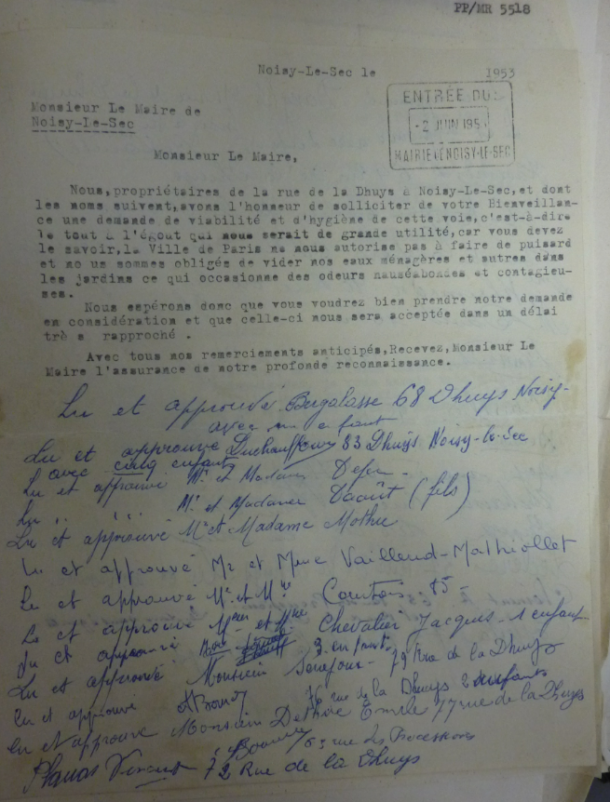 PP/MR 5518
Noisy-Le-Sec le 1953
ENTRÉE DU:
-2 JUIN 195
MAIRIE DE NOISY-LE-SEC
Monsieur Le Maire de
Noisy-Le-Sec
Monsieur Le Maire,
Nous,propriétaires de la rue de la Dhuys à Noisy-Le-Sec,et dont
les noms suivent,avons l'honneur de solliciter de votre Bienveillan-
ce une demande de viabilité et d'hygiène de cette voie,c'est-à-dire
le tout à l'égout qui nous serait de grande utilité,car vous devez
le savoir,la Ville de Paris ne nous autorise pas à faire de puisard
et no us sommes obligés de vider nos eaux ménagères et autres dans
les jardins ce qui occasionne des odeurs nauséabondes et contagieu-
ses.
Nous espérons donc que vous voudrez bien prendre notre demande
en considération et que celle-ci nous sera acceptée dans un délai
trè s rapproché .
Avec tous nos remerciements anticipés,Recevez,Monsieur Le
Maire l'assurance de notre profonde reconnaissance.
Lu et approuvé 68 Dhuys Noisy-
avec
Lu et approuvé 83 Dhuys Noisy-le-Sec
avec cinq enfants
Lu et approuvé Mr et Madame
Lu " " Mr et Madame Daoût (fils)
Lu et approuvé Mr et Madame Mothu
Lu et approuvé Mr et Mme Vailleud-Mathiollet
Lu et approuvé Mr et Mme Courtois 85
Lu et approuvé Mr et Mme Chevalier Jacques - 1 enfant
Lu et approuvé 3 enfants
Lu et approuvé Monsieur 79 Rue de la Dhuys
Lu et approuvé 76 rue de la Dhuys 2 enfants
Lu et approuvé Monsieur Emile 77 rue de la Dhuys
rue des Processions
Planas Vincent 72 Rue de la Dhuys